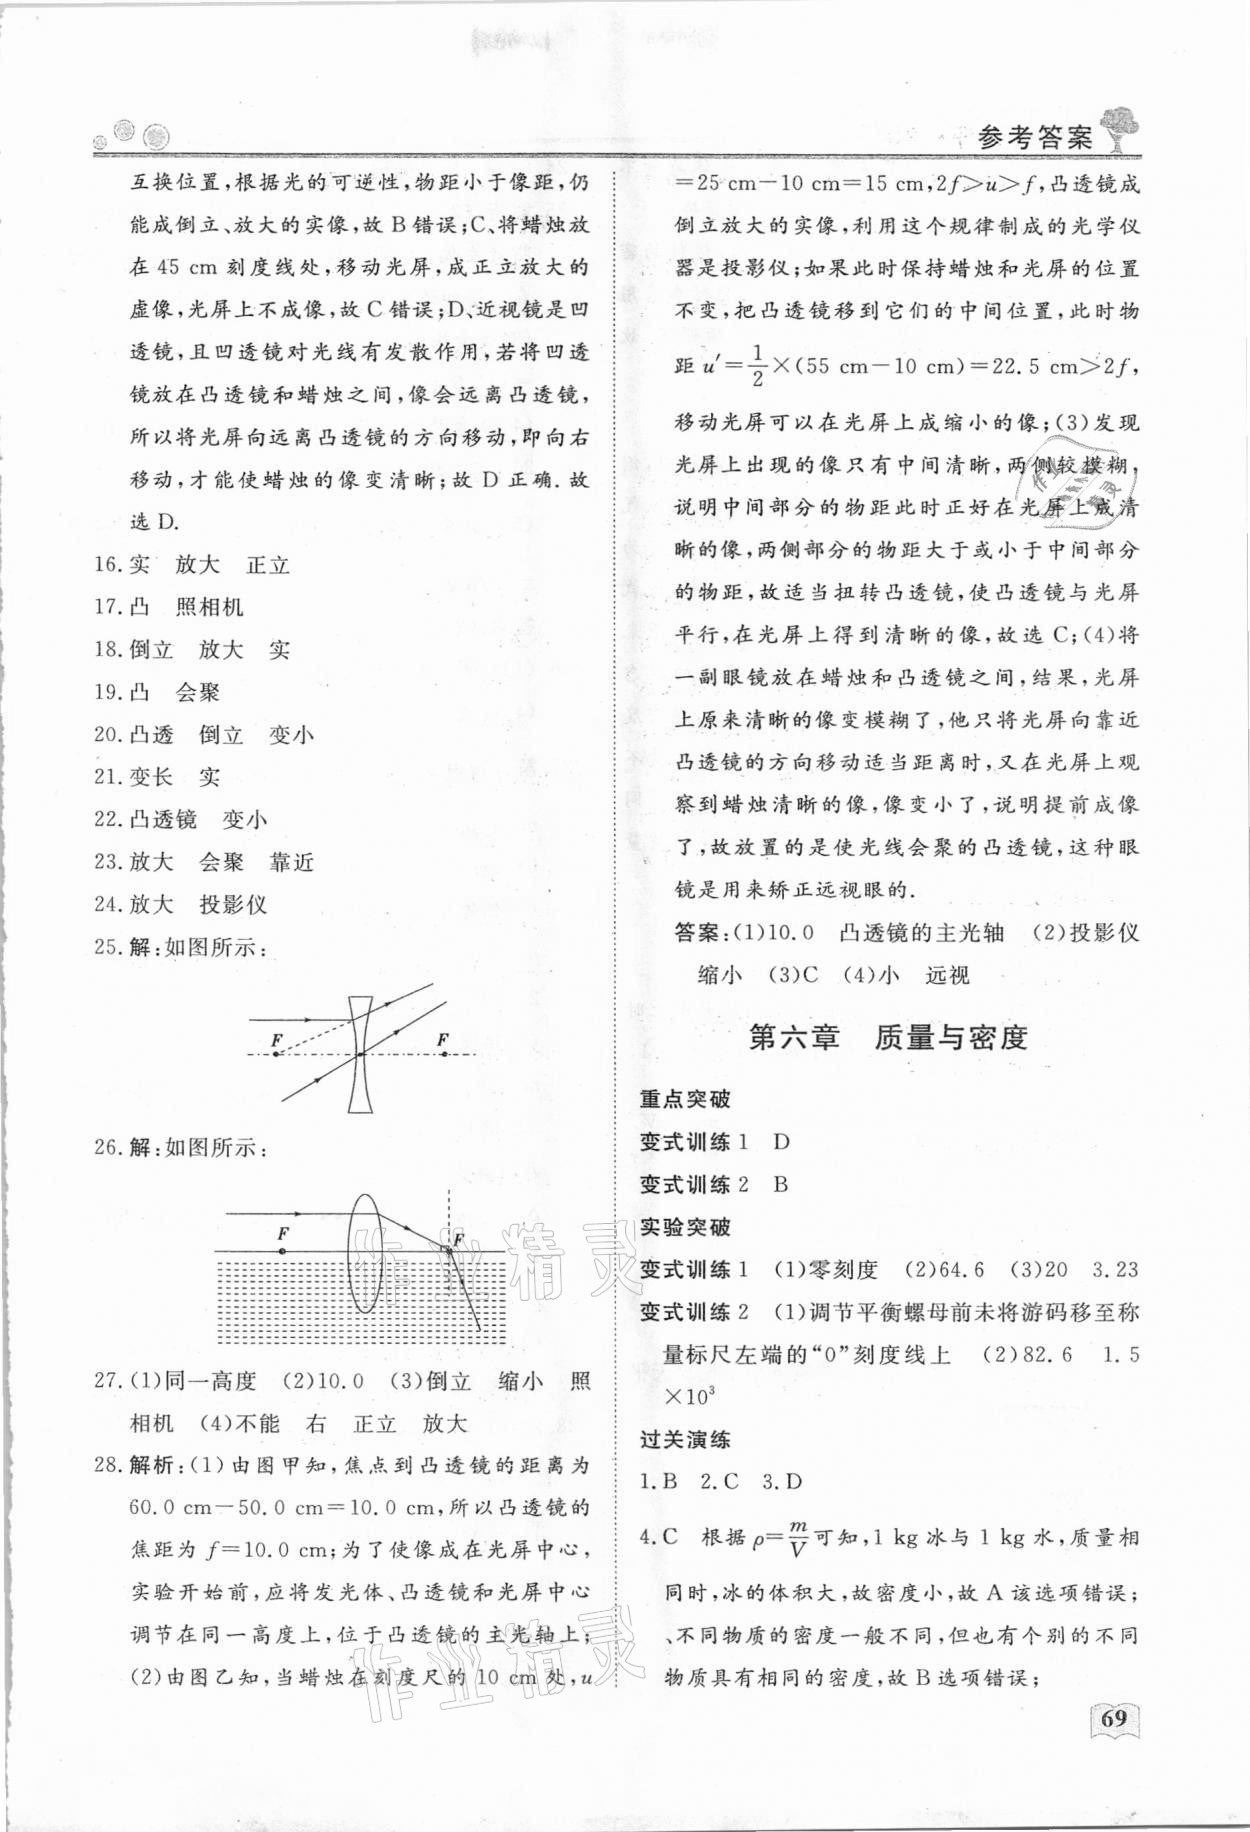 参考答案
互换位置，根据光的可逆性，物距小于像距，仍
能成倒立、放大的实像，故 B 错误；C、将蜡烛放
在 45 cm 刻度线处，移动光屏，成正立放大的
虚像，光屏上不成像，故 C 错误；D、近视镜是凹
透镜，且凹透镜对光线有发散作用，若将凹透
镜放在凸透镜和蜡烛之间，像会远离凸透镜，
所以将光屏向远离凸透镜的方向移动，即向右
移动，才能使蜡烛的像变清晰；故 D 正确．故
选 D.
16. 实　放大　正立
17. 凸　照相机
18. 倒立　放大　实
19. 凸　会聚
20. 凸透　倒立　变小
21. 变长　实
22. 凸透镜　变小
23. 放大　会聚　靠近
24. 放大　投影仪
25. 解：如图所示：
F
F
26. 解：如图所示：
F
F
27. (1)同一高度　(2)10.0　(3)倒立　缩小　照
相机　(4)不能　右　正立　放大
28. 解析：(1)由图甲知，焦点到凸透镜的距离为
60.0 cm－50.0 cm＝10.0 cm，所以凸透镜的
焦距为 f＝10.0 cm；为了使像成在光屏中心，
实验开始前，应将发光体、凸透镜和光屏中心
调节在同一高度上，位于凸透镜的主光轴上；
(2)由图乙知，当蜡烛在刻度尺的 10 cm 处，u
＝25 cm－10 cm＝15 cm，2f＞u＞f，凸透镜成
倒立放大的实像，利用这个规律制成的光学仪
器是投影仪；如果此时保持蜡烛和光屏的位置
不变，把凸透镜移到它们的中间位置，此时物
距 u′＝1/2×(55 cm－10 cm)＝22.5 cm＞2f，
移动光屏可以在光屏上成缩小的像；(3)发现
光屏上出现的像只有中间清晰，两侧较模糊，
说明中间部分的物距此时正好在光屏上成清
晰的像，两侧部分的物距大于或小于中间部分
的物距，故适当扭转凸透镜，使凸透镜与光屏
平行，在光屏上得到清晰的像，故选 C；(4)将
一副眼镜放在蜡烛和凸透镜之间，结果，光屏
上原来清晰的像变模糊了，他只将光屏向靠近
凸透镜的方向移动适当距离时，又在光屏上观
察到蜡烛清晰的像，像变小了，说明提前成像
了，故放置的是使光线会聚的凸透镜，这种眼
镜是用来矫正远视眼的.
答案：(1)10.0　凸透镜的主光轴　(2)投影仪
缩小　(3)C　(4)小　远视
第六章　质量与密度
重点突破
变式训练 1　D
变式训练 2　B
实验突破
变式训练 1　(1)零刻度　(2)64.6　(3)20　3.23
变式训练 2　(1)调节平衡螺母前未将游码移至称
量标尺左端的“0”刻度线上　(2)82.6　1.5
×10³
过关演练
1. B　2. C　3. D
4. C　根据 ρ＝m/V可知，1 kg 冰与 1 kg 水，质量相
同时，冰的体积大，故密度小，故 A 该选项错误；
、不同物质的密度一般不同，但也有个别的不同
物质具有相同的密度，故 B 选项错误；
69
作业精灵
作业精灵
作业精灵